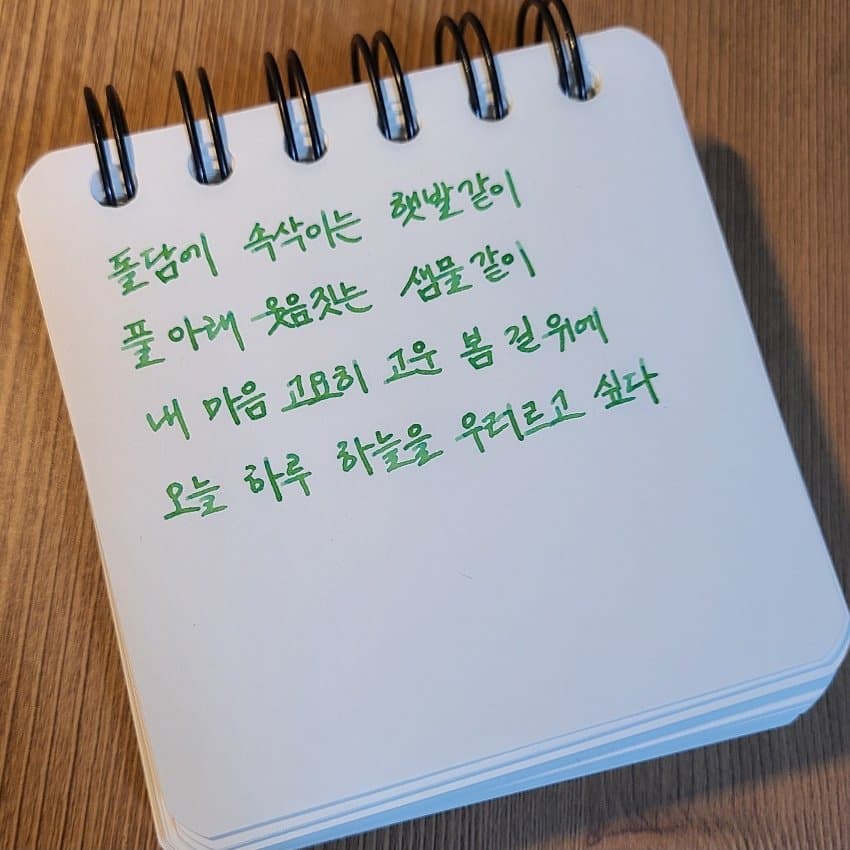 돌담에 속삭이는 햇발같이
풀 아래 웃음짓는 샘물같이
내 마음 고요히 고운 봄 길 위에
오늘 하루 하늘을 우러르고 싶다